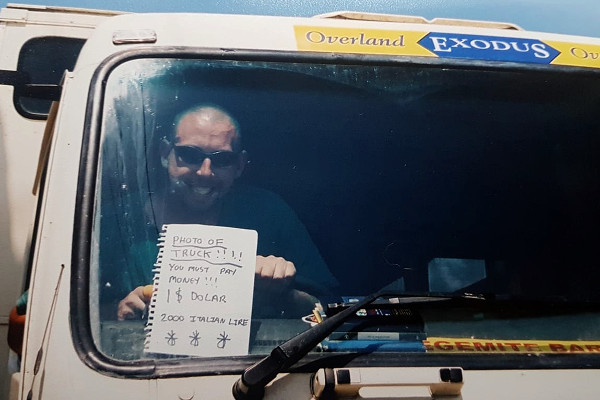 Overland EXODUS Ov
PHOTO OF
TRUCK!!!!
YOU MUST PAY
MONEY!!!
1$ DOLAR
2000 ITALIAN LIRE
GEMITE BAR